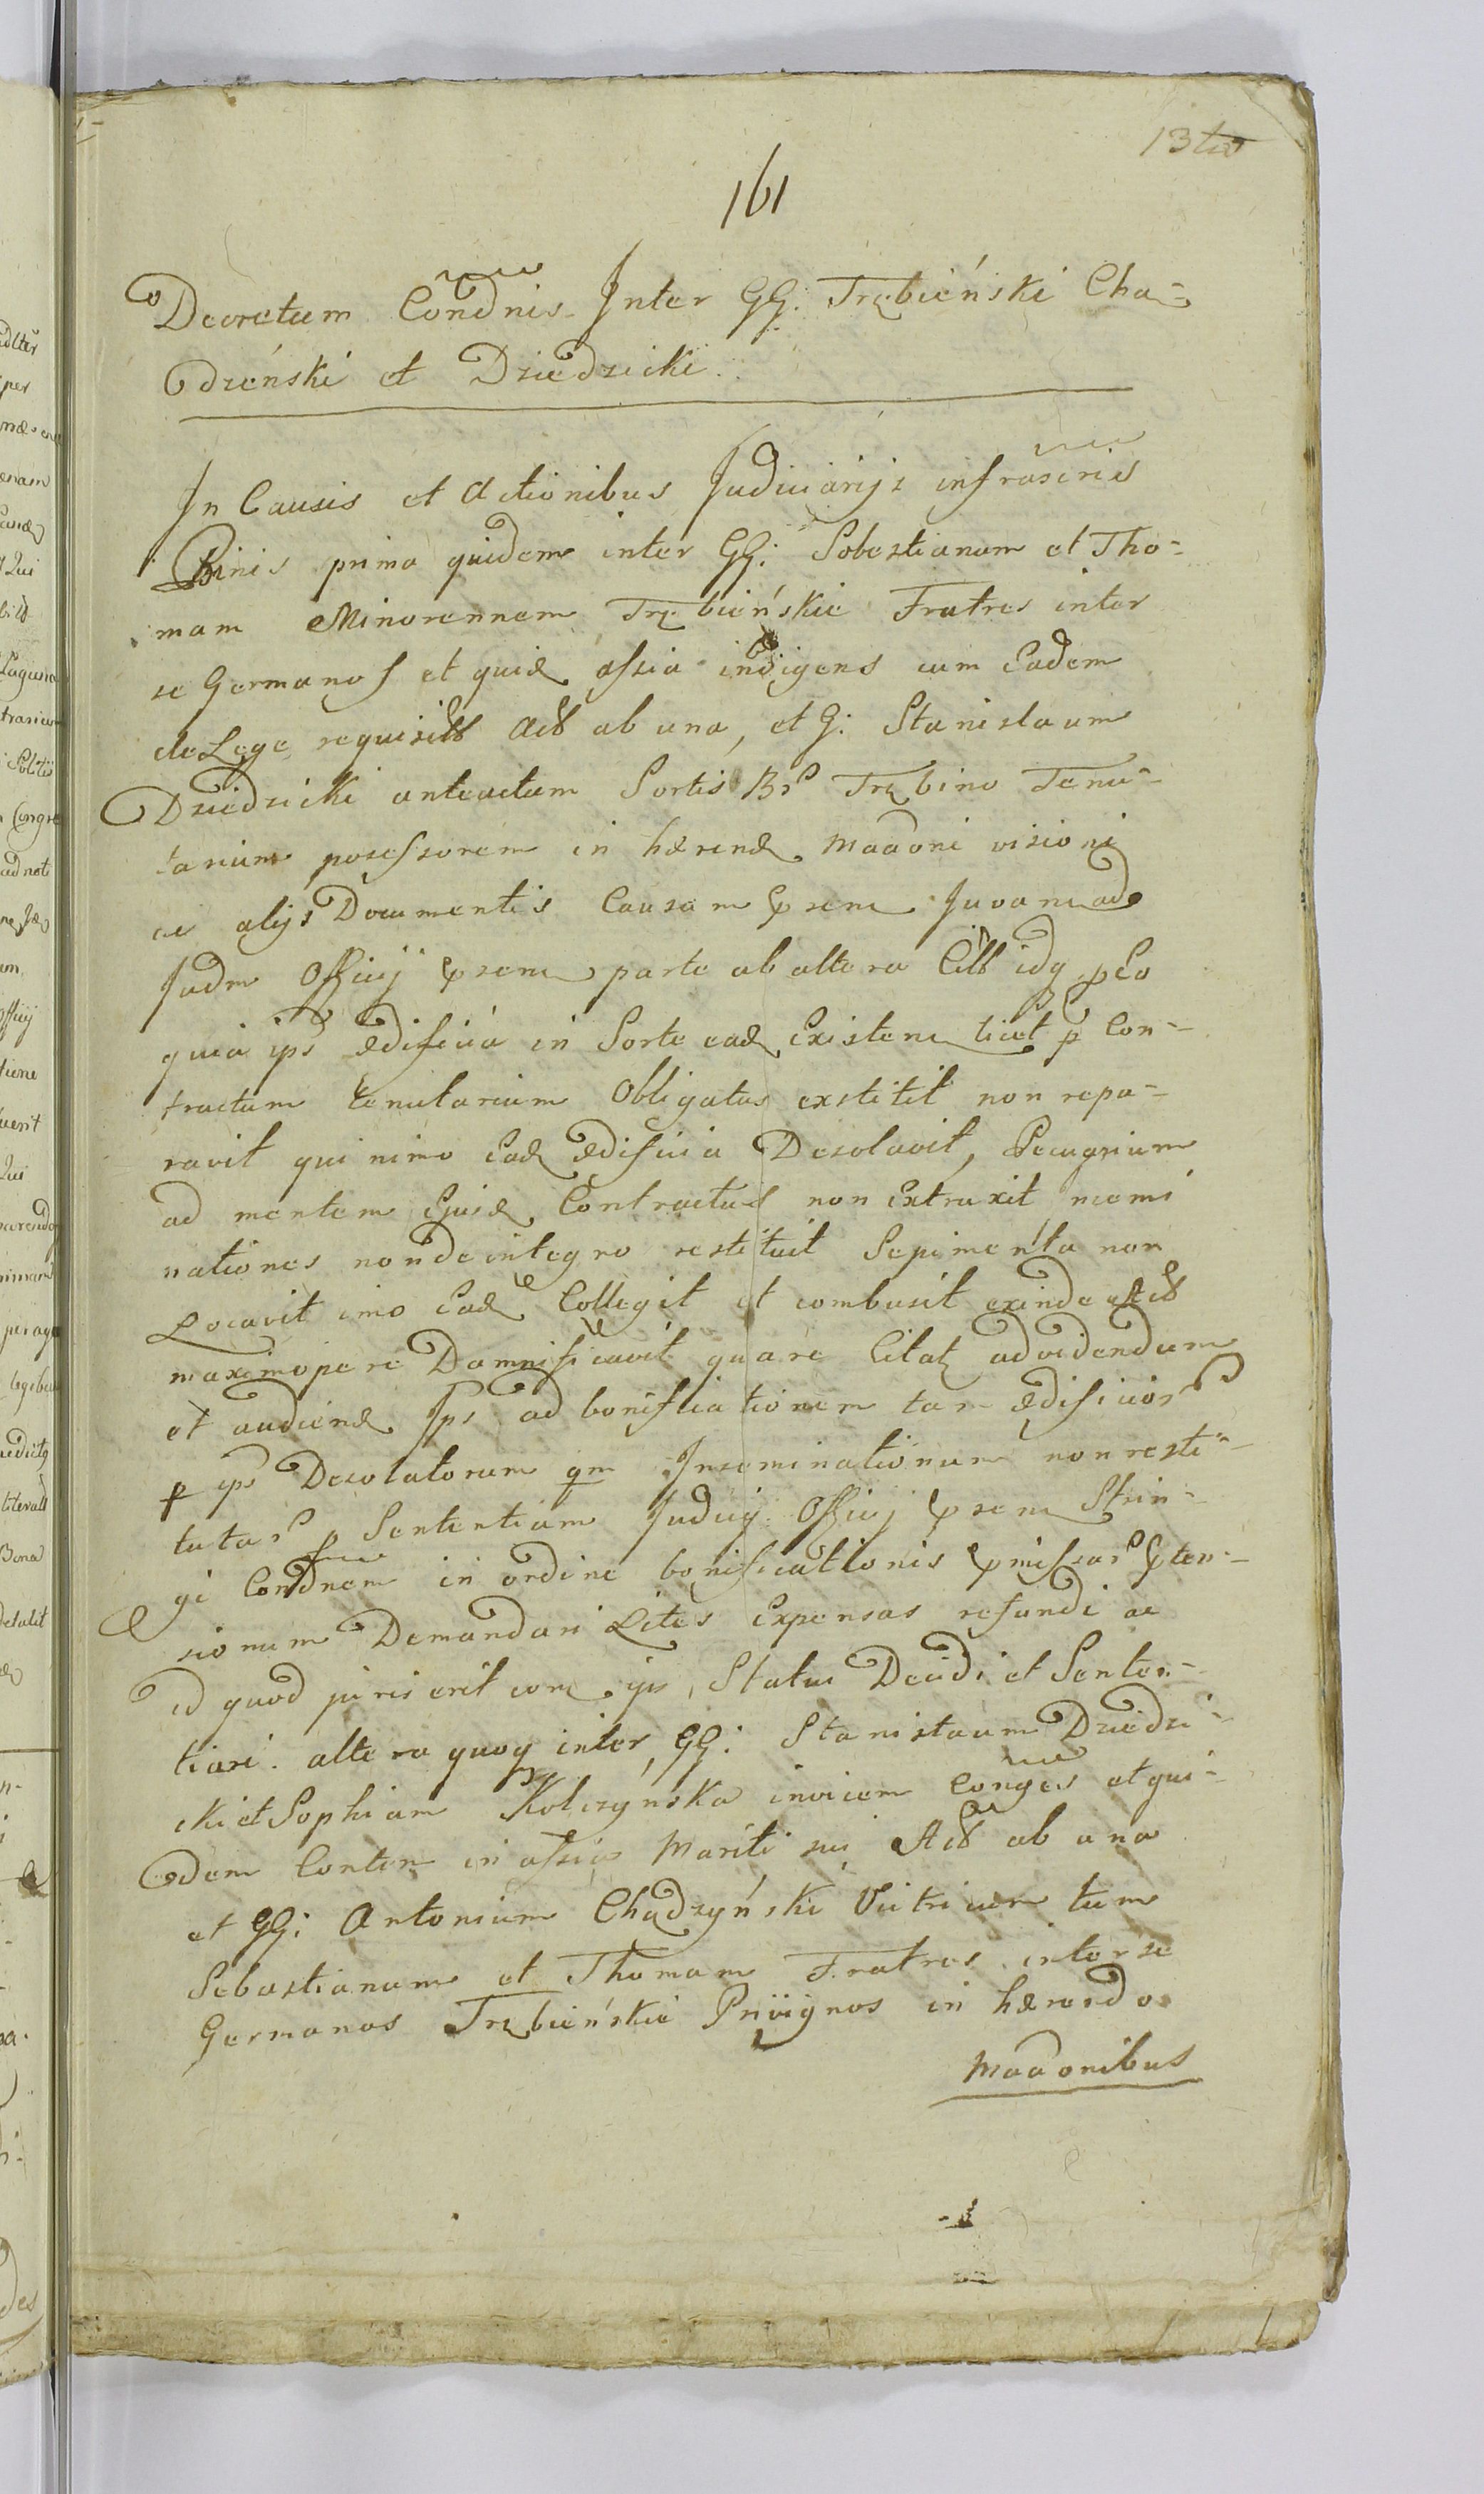 13tio
161
Decretum Condnis Inter GG: Trębieński Cha-
dzeński et Dziedzicki.
In Causis et Actionibus Judiciarijs infrascris
Binis prima quidem inter GG: Sobestianum et Tho-
mam Minorennem Trębieńskie Fratres inter
se Germanos et quid assia indigens cum Eadem
de Lege requisit Act ab una, et G: Stanislaum
Dziedzicki anteactum Sortis Br Trębino Tenu-
tarium possessorem in hærend maaoni visioni
ac alijs Documentis Causam psene Juvan ad
Judm Officij psene parte ab altera Citt idq p Eo
quia ips ædificia in Sorte ead Existen licet p Con-
tractum tenutarium Obligatus exstitit non repa-
ravit qui nimo Ead ædificia Desolavit, Pecugnium
ad mentem Ejusd Contractus non Extraxit memi
nationes non de integro restituit Sepimenta non
Locavit imo Ead Collegit et combusit exinde Act
maximopere Damnificavit quare Citat ad videndum
et audiend Ips ad bonifiationem tan ædificior
p ips Desolatorum qm Inseminationum non resti-
tutar p Sententiam Judicij Officij psene Strin-
gi Condnem in ordine bonificationis pmissar pten-
sionum Demandari Lites Expensas refundi ac
id quod juris erit com ips, Statui Decidi et Senten-
tiari. altera quoq inter GG: Stanislaum Dziedzi-
cki et Sophiam Kolczyńska invicem Conges et qui-
dem Conten in assia Mariti sui Act ab una
et GG: Antonium Chądzyński Vitricum tum
Sebastianum et Thomam Fratres inter se
Germanos Trębieńskie Privignos in hærendo
maaonibus